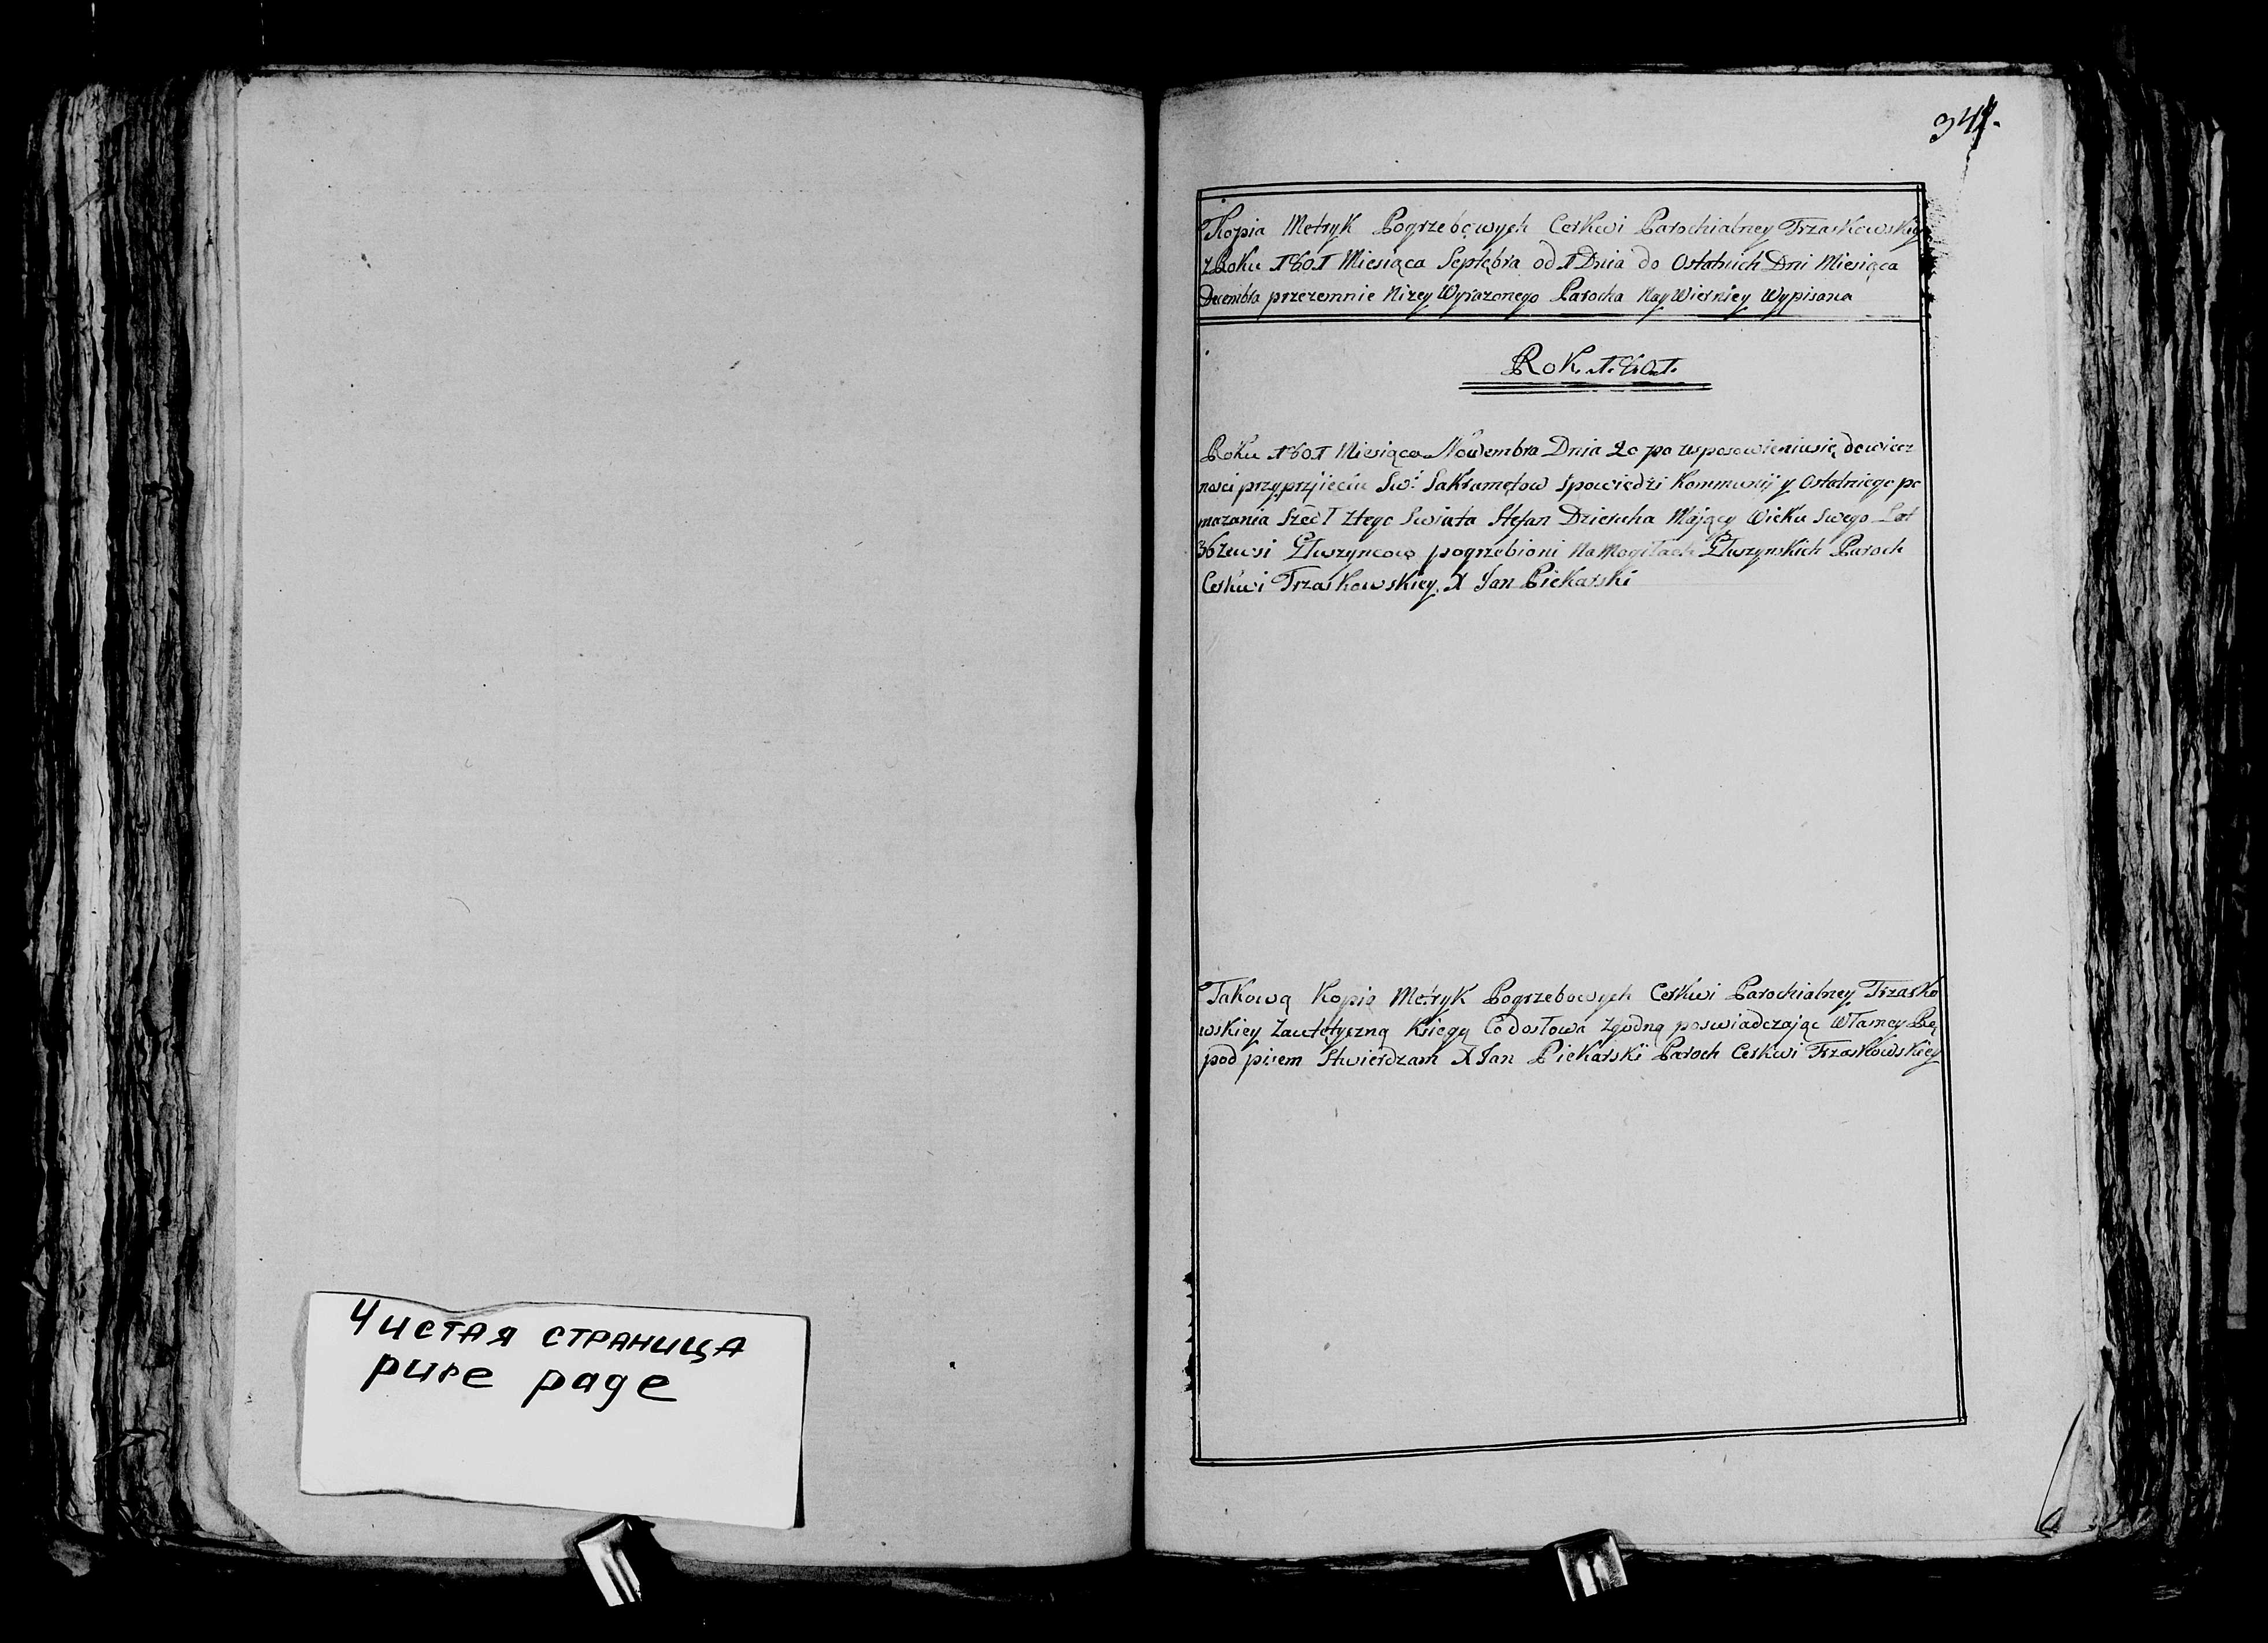 Чистая страница
pure page
341.
Kopia Metryk Pogrzebowych Cerkwi Parochialney Trzaskowskiey
z Roku 1801 Miesiąca Septębra od 1 Dnia do Ostatnich Dni Miesiąca
Decembra przezemnie Nizey Wyrazonego Parocha Nay Wierniey Wypisana
Rok. 1.8.0.1.
Roku 1801 Miesiąca Nowembra Dnia 20 po usposowieniusię dowiecz
nosci przy przyjięciu Sw: Sakramętow Spowiedzi Kommunij y Ostatniego po
mazania Szedł Ztego Swiata Stefan Dzierucha Mający Wieku Swego Lat
36 zewsi pogrzebioni Na Mogiłach Paroch
Cerkwi Trzaskowskiey X Jan Piekarski
Takową Kopią Metryk Pogrzebowych Cerkwi Parochialney Trzasko
wskiey Zautętyczną Księgą Co dosłowa Zgodną poswiadczając Własney Rę
pod pisem Stwierdzam X Jan Piekarski Paroch Cerkwi Trzaskowskiey